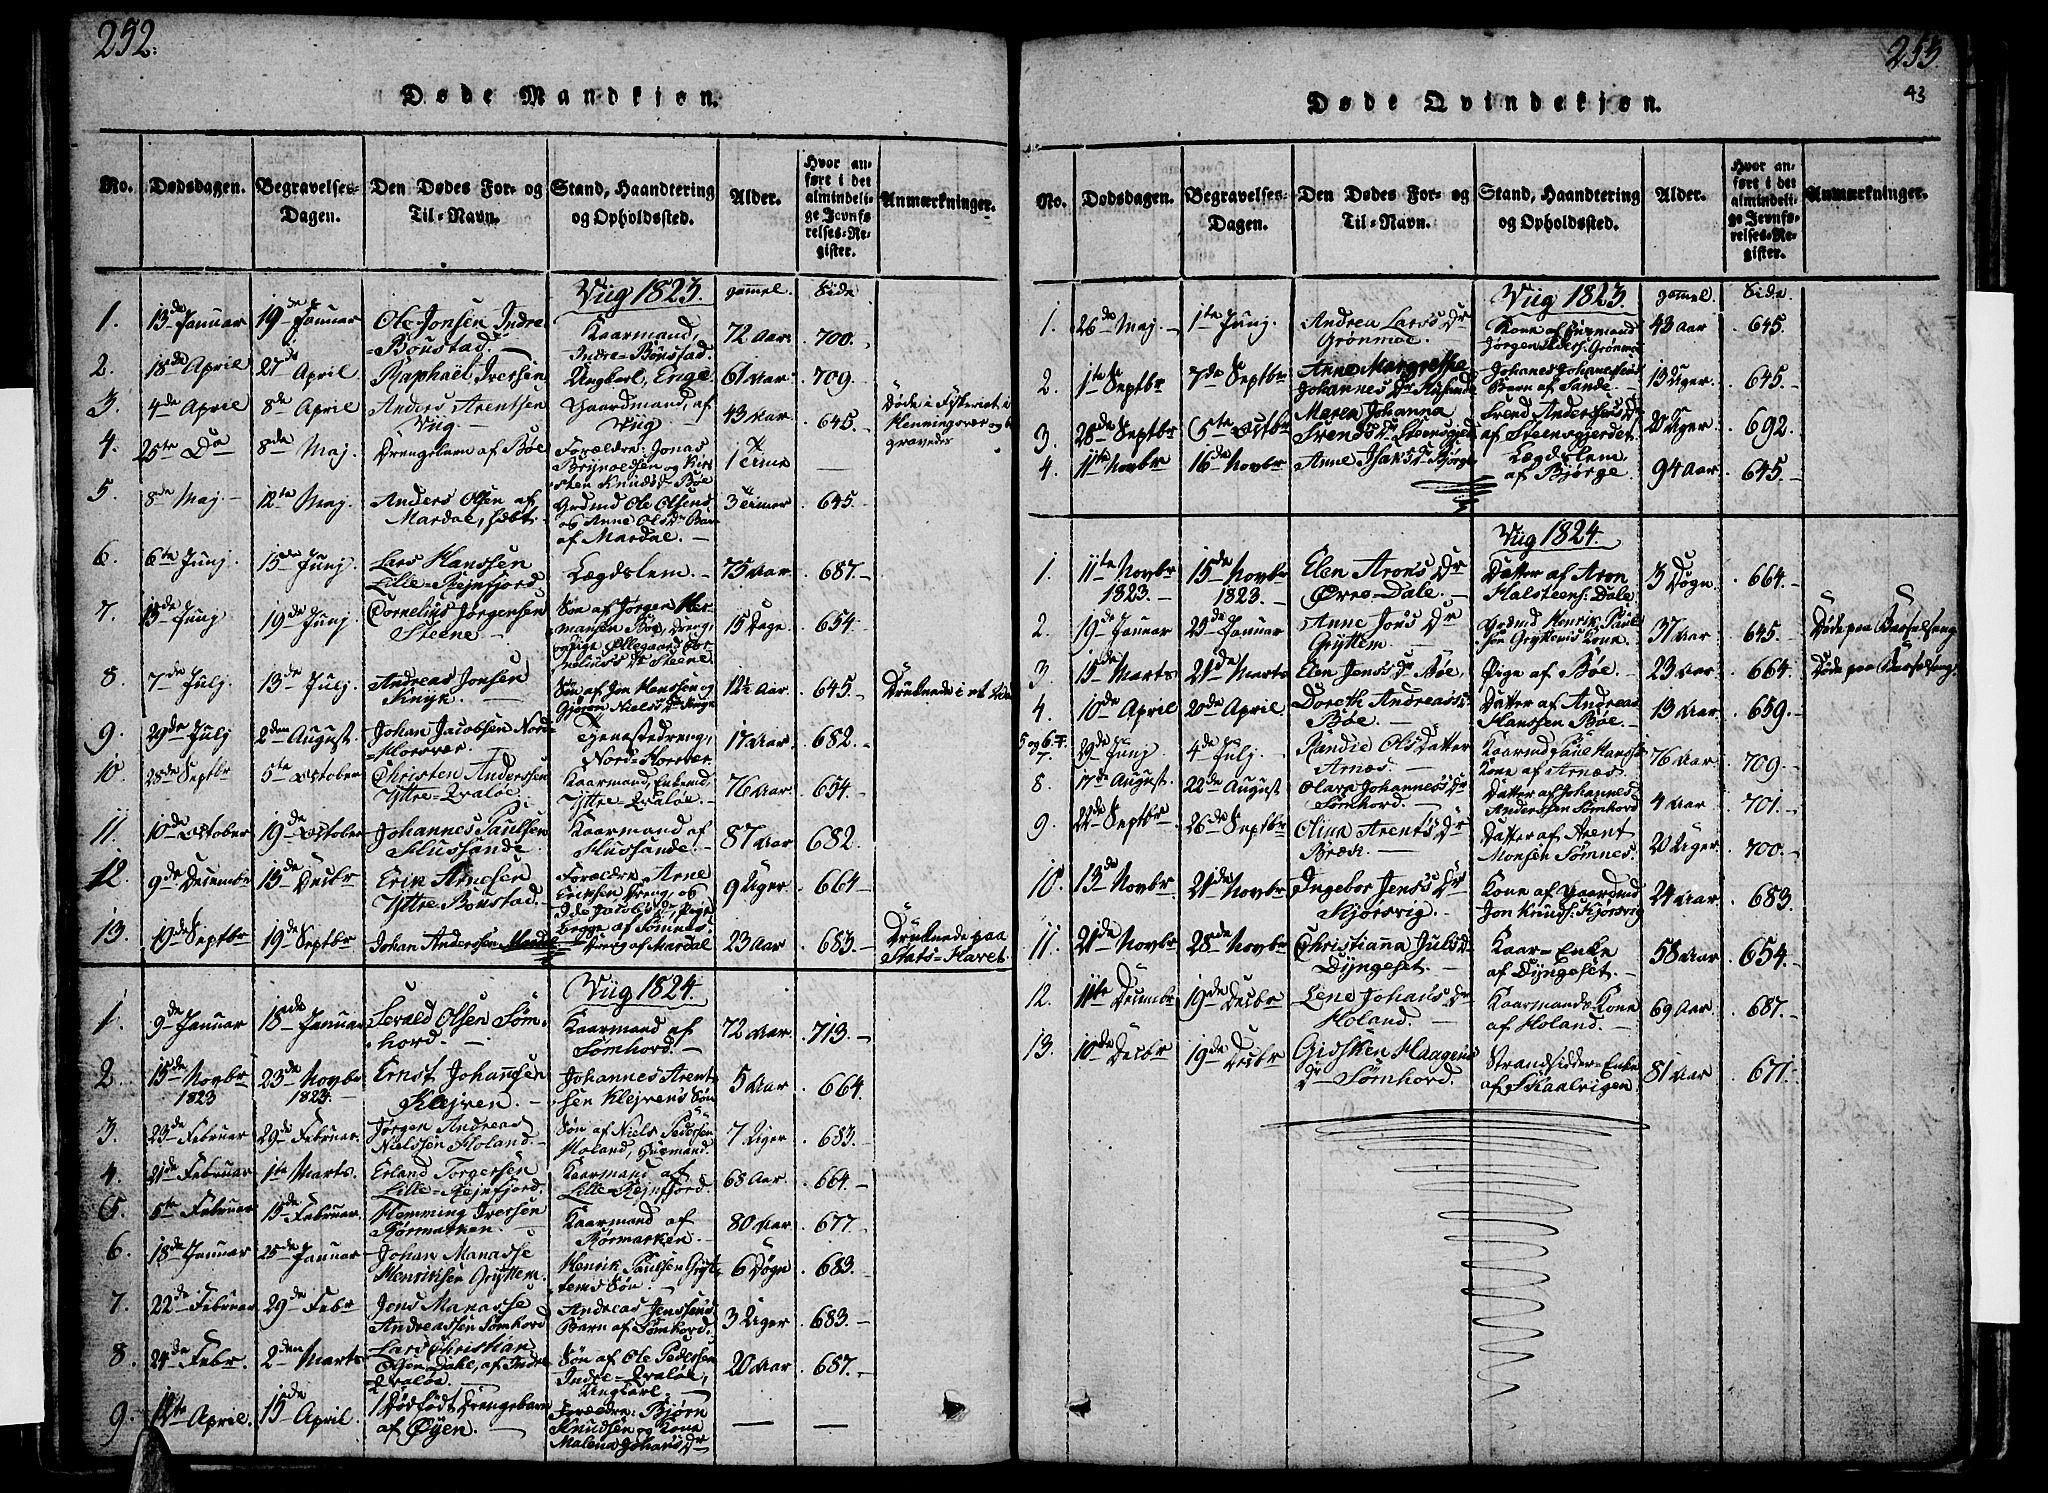 252.
Døde Mandkjøn.
No. Dødsdagen. Begravelses-Dagen. Den Dødes For- og Til-Navn. Stand, Haandtering og Opholdssted. Alder. Hvor anført i det almindelige Jevnførelses-Register. Anmærkninger.
Viig 1823. gammel. Side
1. 13de Januar 19de Januar Ole Jonsen Indre-Boustad. Kaarmand, Indre-Boustad. 72 Aar. 700.
2. 18de April 27de April Raphaël Iversen Ungkarl, Enge 61 Aar. 709.
3. 4de April 8de April Anders Arentsen Viig Gaardmand, af Viig 43 Aar. 645. Døde i Fiskeriet i Henningsvær og begravedes
4. 25te Do 8de Maj. Drengebarn af Bøe Forældre: Jonas Brynoldsen og Kirsten Knudsdr Bøe 1 Time
5. 8de Maj 12te Maj. Anders Olsen af Mardal, hdøbt Grdmd Ole Olsens og Anne Olsdr Barn af Mardal. 3 Timer 645.
6. 6te Junj 15de Junj. Lars Hanssen Lille-Rejnfjord Lægdslem. 75 Aar. 687.
7. 13de Junj 19de Junj. Cornelius Jørgensen Steene Søn af Jørgen Hermansen Bøe, Dreng, og Pige Øllegaard Cornelius Dr Steene. 15 Dage 654.
8. 7de Julj. 13de Julj. Andreas Jonsen Knyk. Søn af Jon Hanssen og Gjøron Niels Dr 12½ Aar. 645. Druknede i et
9. 29de Julj 2den August. Johan Jacobsen Nord-Horsvær Tjenestedreng, Nord-Horsvær 17 Aar. 682.
10. 28de Septbr 5te October Christen Anderssen Yttre-Qvaløe. Kaarmand, Enkemd, Yttre-Qvaløe. 76 Aar. 654.
11. 10de October 19de October Johannes Paulsen Hussande. Kaarmand af Hussande. 87 Aar 682.
12. 9de Decembr 13de Decbr Erik Arnesen Yttre Boustad. Forældre Arne Eriksen Dreng, og Ide Jacobsdr, Pige, begge af Sømnes. 9 Uger 664.
13. 19de Septbr 19de Septbr Johan Anderssen Dreng af Mardal 23 Aar 683. Druknede paa Stats-Havet.
Viig 1824.
1. 9de Januar 18de Januar Sevald Olsen Sømhord. Kaarmand af Sømhord. 72 Aar 713.
2. 15de Novbr 1823 23de Novbr 1823. Ernst Johansen Klejven. Johannes Arentsen Klejvens Søn 5 Aar 664.
3. 23de Februar 29de Februar. Jørgen Andreas Nielssen Holand. Søn af Niels Pedersen Holand, Huusmand. 7 Uger 683.
4. 21de Februar 1te Marts. Erland Torgersen Lille-Rejnfjord. Kaarmand af Lille-Rejnfjord. 68 Aar. 664.
5. 5te Februar 15de Februar. Hemming Iversen Rørmarken. Kaarmand af Rørmarken. 80 Aar 677.
6. 18de Januar 25de Januar Johan Manasse Henriksen Gryttem. Henrik Paulsen Gryttems Søn 6 Døgn 683.
7. 22de Februar 29de Febr Jens Manasse Andreassen Sømhord Andreas Jenssens Barn af Sømhord. 3 Uger 683.
8. 24de Febr. 2den Marts Lars Christian Olsen Dahl, af Indre Qvaløe. Søn af Ole Pedersen Indre-Qvaløe, Ungkarl. 20 Aar 687.
9. 12te April. 15de April. 1 Dødfødt Drengebarn af Øyen. Forældre: Bjørn Knudsen og Kone Malena Johans Dr
253.
43
Døde Qvindekjøn.
No. Dødsdagen. Begravelses-Dagen. Den Dødes For- og Til-Navn. Stand, Haandtering og Opholdssted. Alder. Hvor anført i det almindelige Jevnførelses-Register. Anmærkninger.
Viig 1823. gammel. Side.
1. 26de Maj. 1te Junj. Andrea Lars Dr Grønmoe. Kone af Huusmand Jørgen Anders. Grønmoe 43 Aar 645.
2. 1te Septbr 7de Septbr. Anne Margrethe Johannes Dr Johanes Johanesens Barn af Sande. 13 Uger. 645.
3. 28de Septbr 5te Octbr Maren Johanna Svends Dr Steensgjerd Svend Anderssens Dr af Steensgjerdet. 20 Uger. 692.
4. 11te Novbr 16de Novbr Anne Isaks Dr Bjørge Lægdslem. af Bjørge. 94 Aar 645.
Viig 1824.
1. 11te Novbr 1823. 15de Novbr 1823. Elen Arons Dr Øvre-Dale. Datter af Aron Halsteens: Dale. 3 Døgn 664.
2. 19de Januar 25de Januar Anne Jons Dr Gryttem Grdmd Henrik Paulsen Gryttems Kone. 37 Aar 645. Døde paa Barselseng
3. 15de Marts 21de Marts Elen Jenss Dr Bøe, Pige af Bøe. 23 Aar 664. Døde paa Barselseng.
4. 10de April 20de April. Doreth Andreass Dr Bøe. Datter af Andreas Hanssen Bøe. 13 Aar 659.
5 og 6. 7. 29de Junj 4de Julj. Randie Ols Datter Arnæs. Kaarmd Paul Hanss: Kone af Arnæs. 76 Aar. 709.
8. 17de August. 22de August Olava Johannes Dr Sømhord. Datter af Johannes Anderssen Sømhord 4 Aar 701.
9. 22de Septbr 26de Septbr Olina Arents Dr Bræk. Datter af Arent Monsen Sømnes. 20 Uger. 700.
10. 13de Novbr 21de Novbr Ingebor Jenss Dr Kjørsvig. Kone af Gaardmd Jon Knuds: Kjørsvig 24 Aar 683.
11. 21de Novbr 28de Novbr Christianna Juls Dr Dyngeset. Kaar-Enke af Dyngeset. 58 Aar 654.
12. 11te Decembr 19de Decbr Lene Johans Dr Holand. Kaarmands Kone af Holand. 69 Aar. 687.
13. 10de Decbr 19de Decbr Gidsken Haagens Dr Sømhord. Strandsidder-Enke af Skaalvigen. 81 Aar 671.